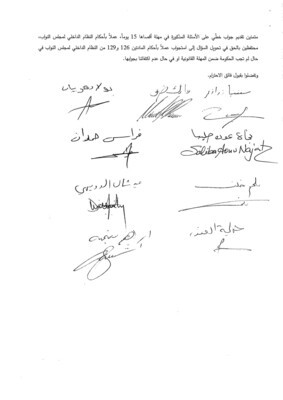 متمنين تقديم جواب خطي على الأسئلة المذكورة في مهلة أقصاها 15 يوماً، عملاً بأحكام النظام الداخلي لمجلس النواب،
محتفظين بالحق في تحويل السؤال إلى استجواب عملاً بأحكام المادتين 126 و129 من النظام الداخلي لمجلس النواب في
حال لم تجب الحكومة ضمن المهلة القانونية او في حال عدم اكتفائنا بجوابها.
وتفضلوا بقبول فائق الاحترام.
بولا يعقوبيان
فراس حمدان
نجاة عون صليبا
ميشال الدويهي
ملحم خلف
ابراهيم منيمنة